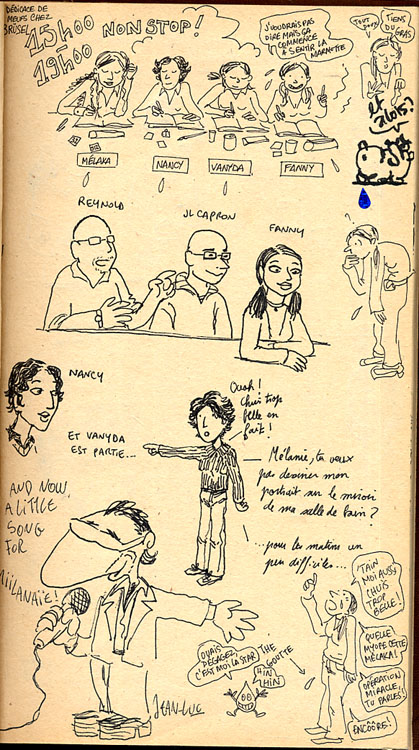 DÉDICACE DE
MEUFS CHEZ
BRÜSEL
15H00
19H00
NON STOP!
J'VOUDRAIS PAS
DIRE MAIS ÇA
COMMENCE
À SENTIR LA
MARMOTTE
TIENS
DU
GRAS
ET
ALORS?
MÉLAKA
NANCY
VANYDA
FANNY
REYNOLD
JL CAPRON
FANNY
?
NANCY
ET VANYDA
EST PARTIE...
Ouah!
Chuis trop
belle en
fait!
Mélanie, tu veux
pas dessiner mon
portrait sur le miroir
de ma salle de bain?
...pour les matins un
peu difficiles...
AND NOW,
A LITTLE
SONG
FOR
MILANAÏE!
JEAN-LUC
OUAIS
DÉGAGEZ
C'EST MOI LA STAR
THE
GOUTTE
HIN
HIN
'TAIN
MOI AUSSI
CHUIS
TROP
BELLE!
QUELLE
MYOPE CETTE
MÉLAKA!
OPÉRATION
MIRACLE,
TU PARLES!
ENCÔÔRE!